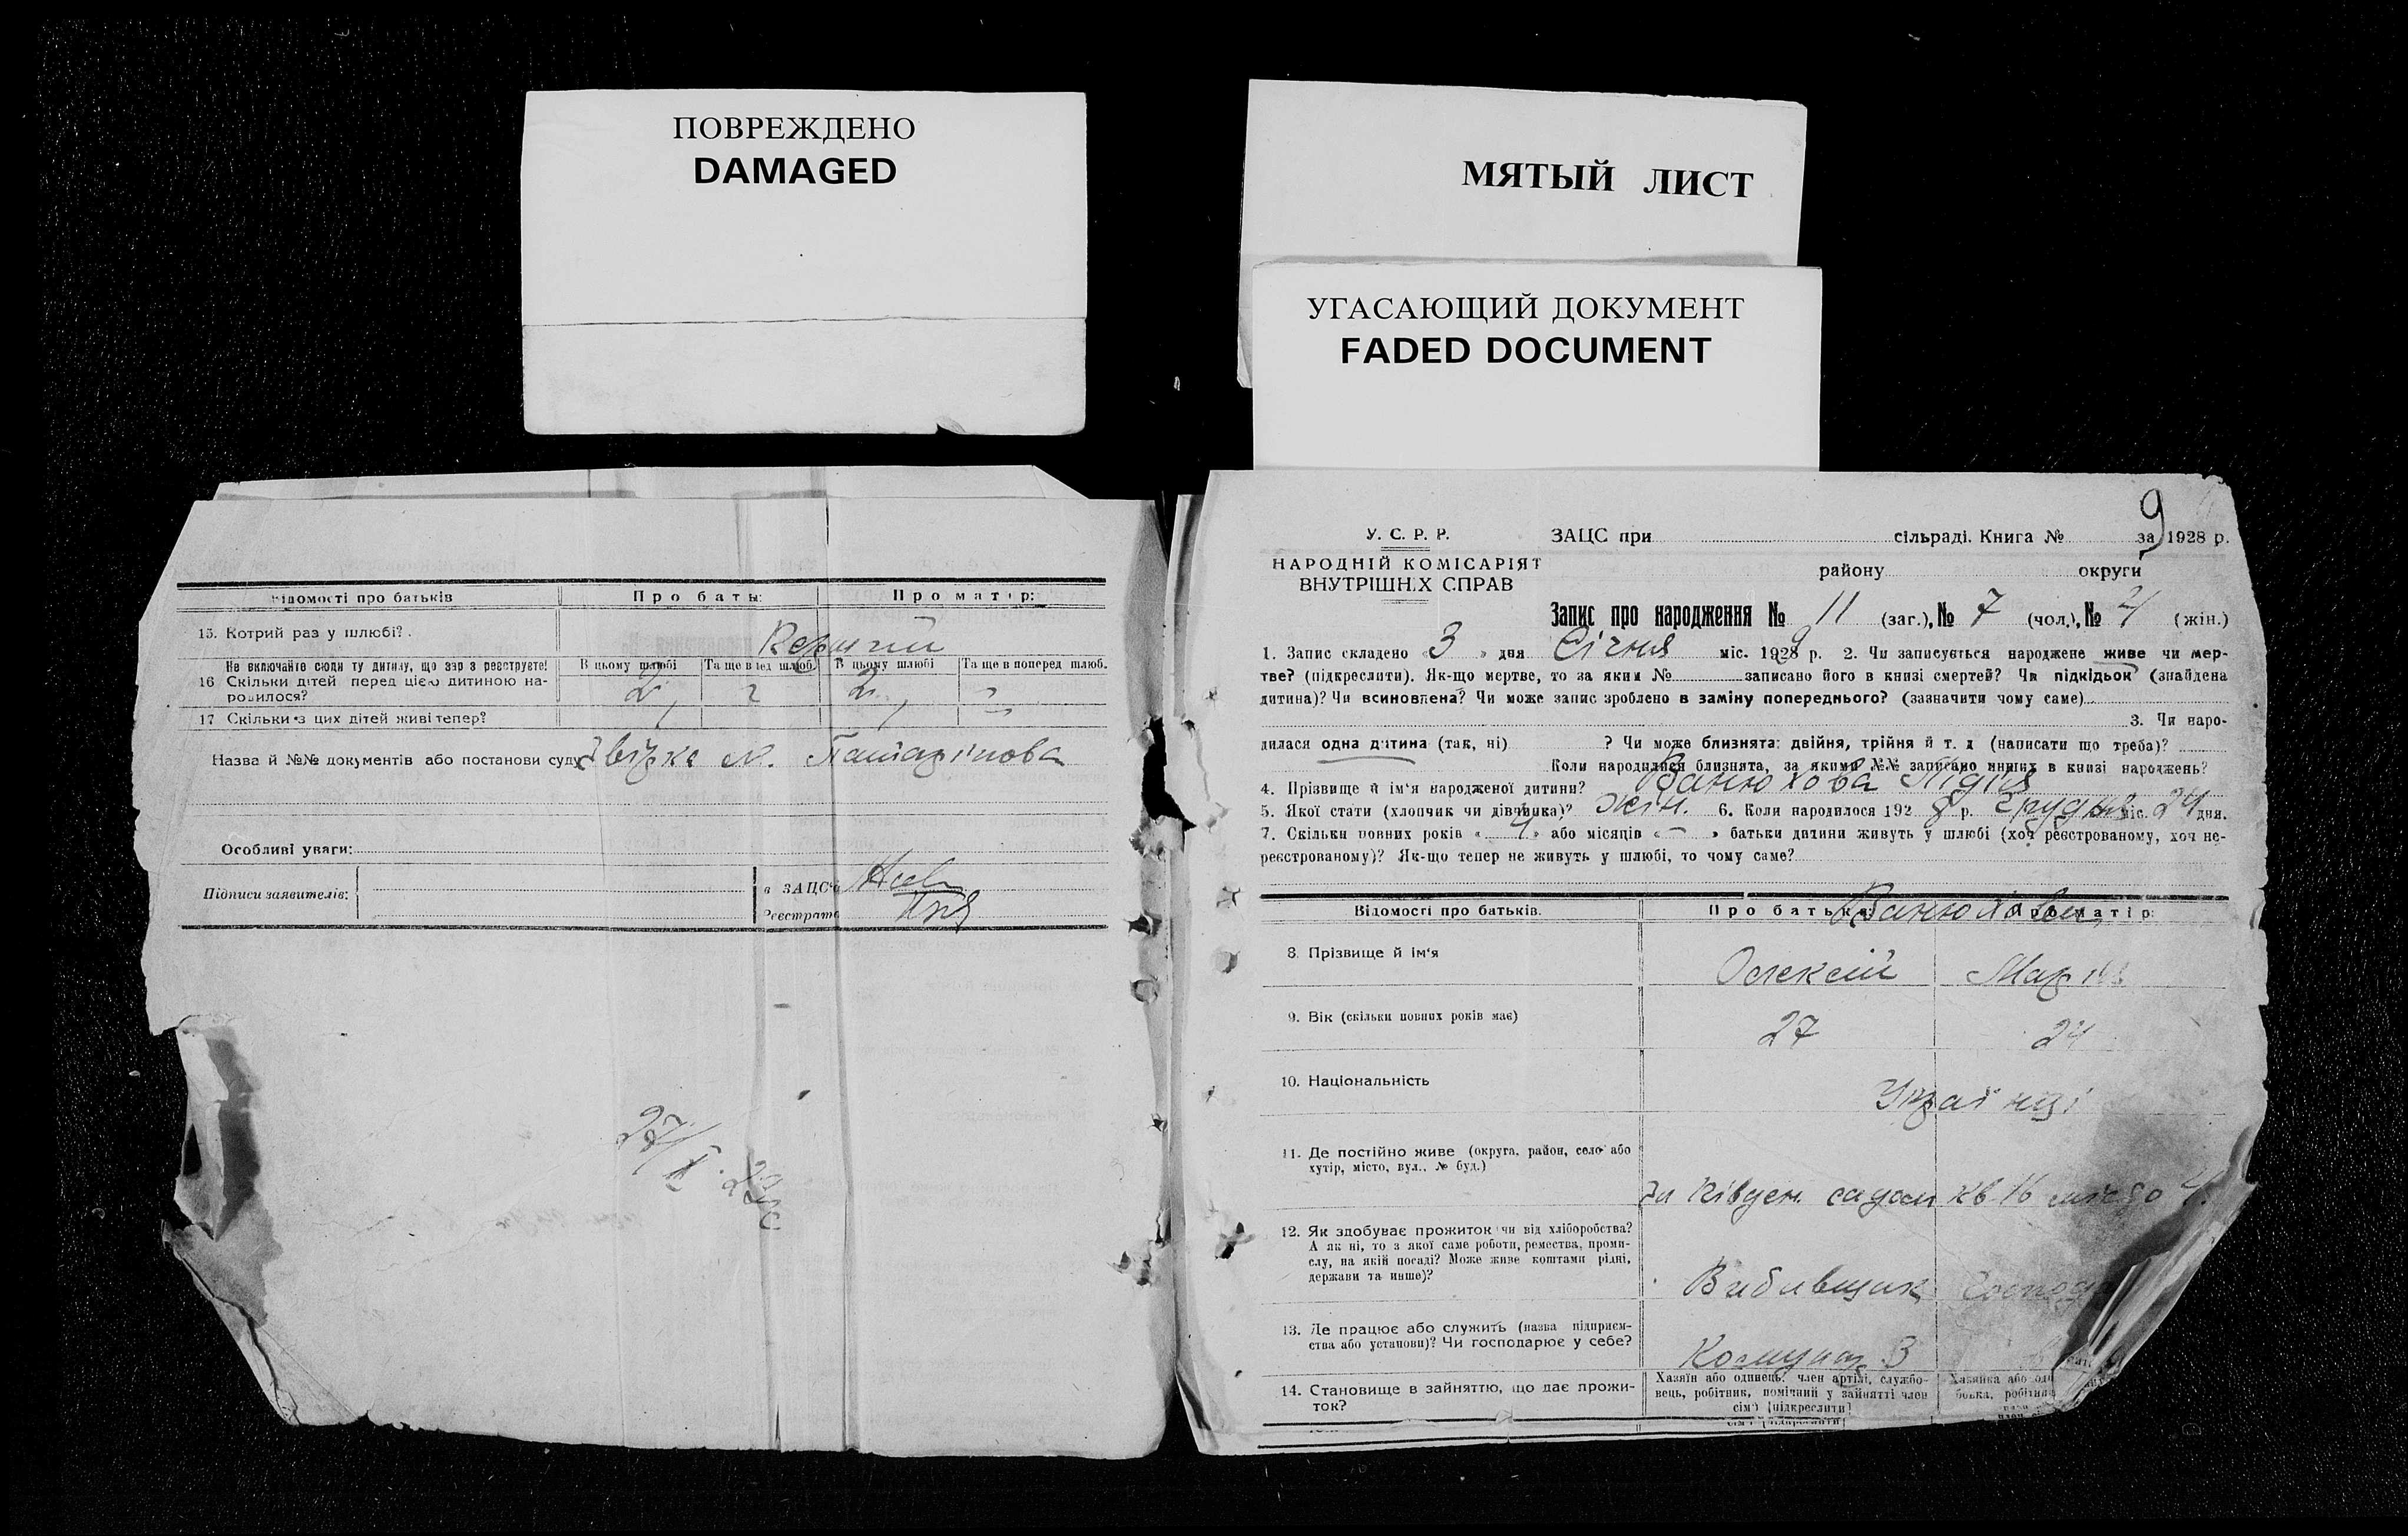 ПОВРЕЖДЕНО
DAMAGED
МЯТЫЙ ЛИСТ
УГАСАЮЩИЙ ДОКУМЕНТ
FADED DOCUMENT
Відомості про батьків Про батьк: Про матір:
15. Котрий раз у шлюбі?
Не включайте сюди ту дитину, що зар з реєструєте! В цьому шлюбі Та ще в поперед шлюб. В цьому шлюбі Та ще в поперед шлюб.
16 Скільки дітей перед цією дитиною на- 2 2
родилося?
17 Скільки з цих дітей живі тепер? 1 1
Назва й №№ документів або постанови суду
Особливі уваги:
Підписи заявителів: в ЗАЦС'і
Реєстратор
9
У. С. Р. Р. ЗАЦС при сільраді. Книга № за 1928 р.
НАРОДНІЙ КОМІСАРІЯТ району округи
ВНУТРІШНІХ СПРАВ
Запис про народження № 11 (заг.), № 7 (чол.), № 4 (жін.)
1. Запис складено « 3 » дня Січня міс. 1929 р. 2. Чи записується народжене живе чи мер-
тве? (підкреслити). Як-що мертве, то за яким № записано його в книзі смертей? Чи підкідьок (знайдена
дитина)? Чи всиновлена? Чи може запис зроблено в заміну попереднього? (зазначити чому саме)
3. Чи наро-
дилася одна дитина (так, ні) ? Чи може близнята: двійня, трійня й т. д (написати що треба)?
Коли народилися близнята, за якими №№ записано инших в книзі народжень?
4. Прізвище й ім'я народженої дитини? Ванюхова Лідія
5. Якої стати (хлопчик чи дівчинка)? жін. 6. Коли народилося 192 8 р. Грудня міс. 24 дня.
7. Скільки повних років « 4 » або місяців « – » батьки дитини живуть у шлюбі (хоч реєстрованому, хоч не-
реєстрованому)? Як-що тепер не живуть у шлюбі, то чому саме?
Відомості про батьків. Про батька: Про матір:
Ванюхови
8. Прізвище й ім'я Олексій Марія
9. Вік (скільки повних років має) 27 24
10. Національність Українці
11. Де постійно живе (округа, район, село або
хутір, місто, вул., № буд.)
За Півден. садом кв 16 місцо 4
12. Як здобуває прожиток чи від хліборобства?
А як ні, то з якої саме роботи, ремества, проми-
слу, на якій посаді? Може живе коштами рідні,
держави та инше)?
Вибивщик Господ
13. Де працює або служить (назва підприєм-
ства або установи)? Чи господарює у себе?
Комунар З
14. Становище в зайняттю, що дає прожи- Хазяїн або одинець, член артілі, службо- Хазяйка або оди
ток? вець, робітник, помічний у зайнятті член
сім'ї [підкреслити]